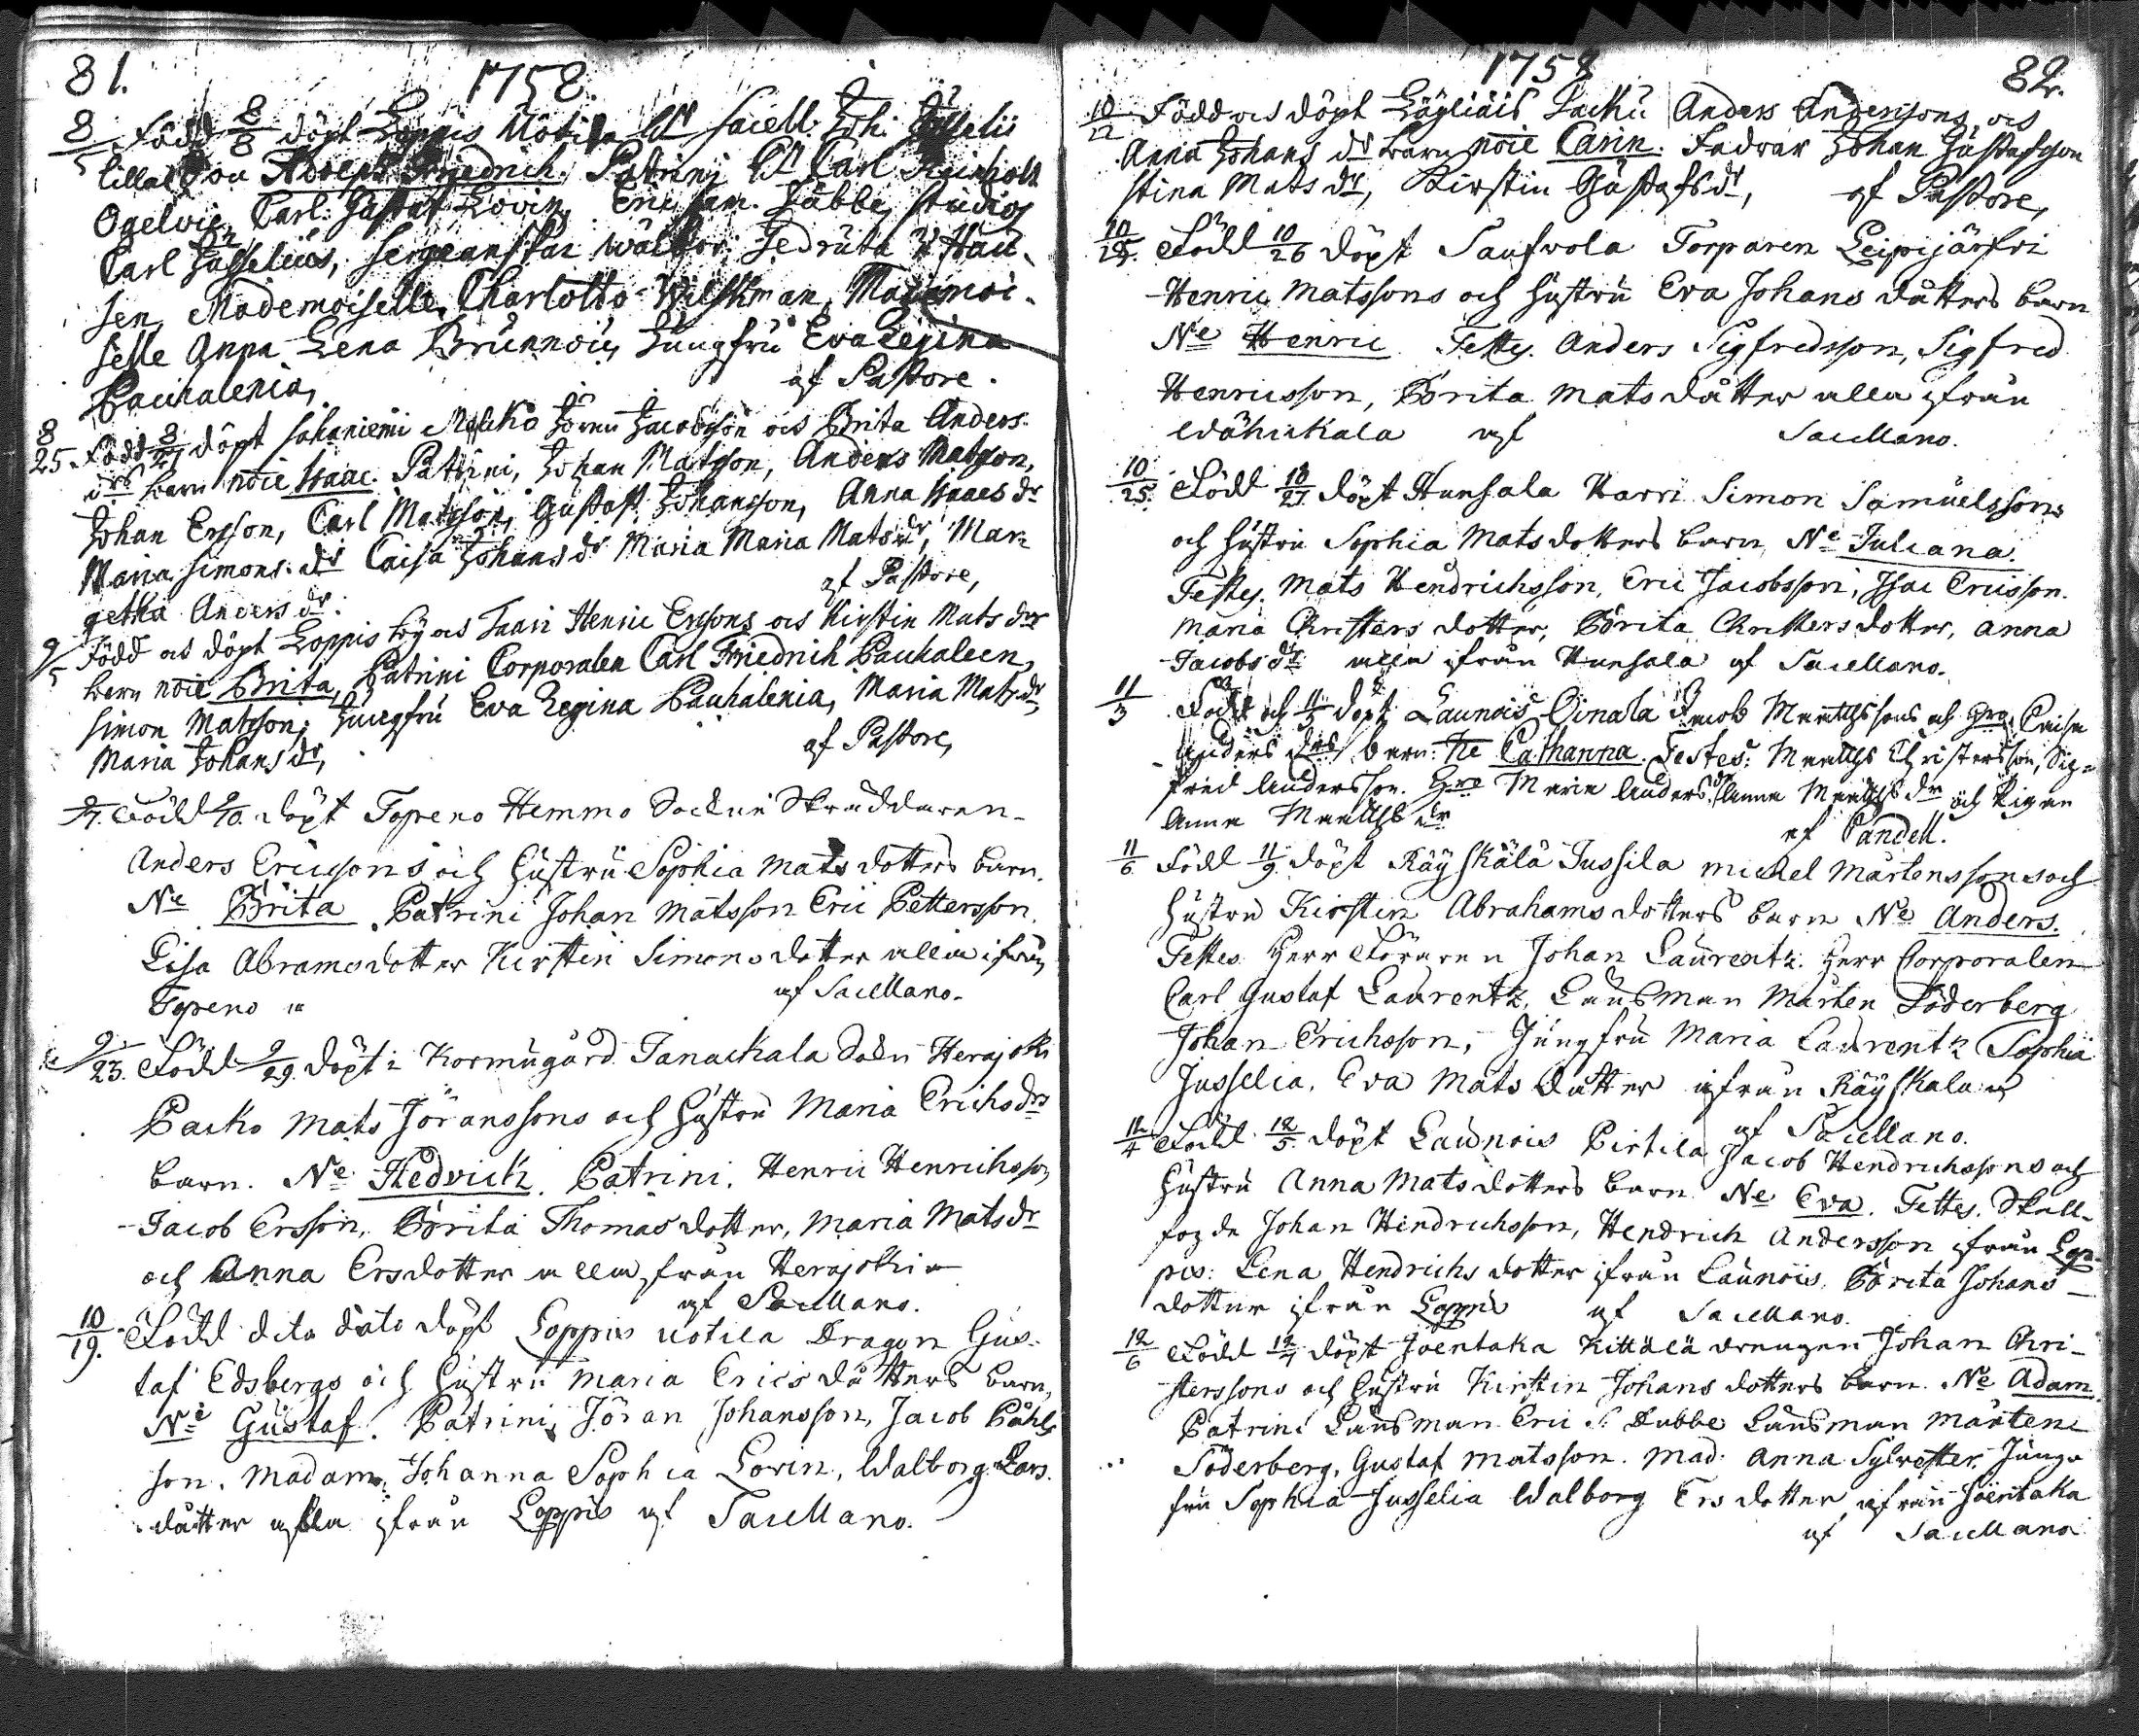 81.
1758.
8/5 Född 8/8 döpt Loppis Uotila Sacell: Joh:
lilla Son Adolph Friedrich. Patrini Carl Reinholt
Ogelvie, Carl Gustaf Lovin, Eric Sam. Dubbe, studios
Carl Jusselius, Sergeanskan
sen Mademoiselle Charlotta Wilskman, Mademoi-
selle Anna Lena Brunnou, Jungfru Eva Regina
Pachalenia, af Pastore.
8/25. Född 8/27 döpt Sahaniemi Jacobson och Brita Anders
drs barn noie Isaac. Patrini, Johan Matsson, Anders Matsson,
Johan Ersson, Carl Matsson, Gustaf Johansson, Anna Isaacs dr
Maria Simons dr Caisa Johans dr Maria Maria Mats dr, Mar
getha Anders dr. af Pastore,
9/5 Född och döpt Loppis by och Henric Erssons och Kirstin Mats drs
barn noie Brita, Patrini Corporalen Carl Friedrich Pachaleen
Simon Matsson, Jungfru Eva Regina Pachalenia, Maria Mats dr
Maria Johans dr, af Pastore,
9/7. Född 9/10. döpt Topeno Hemmo Sockne Skräddaren
Anders Ericssons och hustru Sophia Mats dotters barn.
Ne Brita Patrini Johan Matsson Eric Pettersson
Lisa Abrams dotter Kirstin Simons dotter alla ifrån
Topeno af Sacellano.
9/23. Född 9/29. döpt i Kormugård Janackala Sokn Herajoki
Packo Mats Jöranssons och hustru Maria Erichs drs
barn. Ne Hedvich. Patrini, Henric Henrichsson
Jacob Ersson, Brita Thomas dotter, Maria Mats dr
och Anna Ersdotter alla ifrån Herajoki
af Sacellano.
10/19. Född dito dato döpt Loppis Uotila Dragon Gus-
taf Edsbergs och hustru Maria Erics dåtters barn,
Ne Gustaf. Patrini, Jöran Johansson, Jacob Påhls
son. Madam. Johanna Sophia Lovin, Walborg Lars
dåtter alla ifrån Loppis af Sacellano.
1758
82.
10/22 Född och döpt Läyliäis Anders Anderssons och
Anna Johans dr barn noie Carin. Fadrar Johan Gustafsson
Stina Mats dr, Kirstin Gustafs dr, af Pastore,
10/25. Född 10/26 döpt Saufwola Torparen Leipijärfvi
Henric Matssons och hustru Eva Johans dåtters barn
Ne Henric Testes. Anders Sigfredsson, Sigfred
Henricsson, Brita Mats dåtter alla ifrån
Wähikkala af Sacellano.
10/25. Född 10/27 döpt Hunsala Harri Simon Samuelssons
och hustru Sophia Mats dotters barn, Ne Juliana.
Testes. Mats Hendrichsson, Eric Jacobsson, Isac Ericsson.
Maria Christers dotter, Brita Christers dotter, Anna
Jacobs dr alla ifrån Hunsala af Sacellano.
11/3 Född och 11/5 döpt Launois Oinala Jacob Matthssons och Caisa
Anders drs barn: Ne Cathanna. Testes: Matths Christersson, Sig-
fred Andersson. Maria Anders dr Anna Matths dr och Pigan
Anna Matths dr af Pandell.
11/6 Född 11/9 döpt Räyskälä Jussila Michel Mårtenssons och
hustru Kirstin Abrahams dotters barn Ne Anders.
Testes Herr Föraren Johan Laurentz. Herr Corporalen
Carl Gustaf Laurentz, Länsman Mårten Söderberg
Johan Erichsson, Jungfru Maria Laurentz Sophia
Jusselia, Eva Mats dåtter ifrån Räyskala
af Sacellano.
12/4 Född 12/5. döpt Launois Pirtila Jacob Hendrichssons och
hustru Anna Mats dotters barn Ne Eva. Testes. Skall-
fogde Johan Hendrichsson, Hendrich Andersson ifrån Lop-
pis: Lena Hendrichs dotter ifrån Launois, Brita Johans
dotter ifrån Loppis af Sacellano.
12/6 Född 12/7 döpt Joentaka Kittälä drengen Johan Chri-
sterssons och hustru Kirstin Johans dotters barn. Ne Adam
Patrini Länsman Eric S. Dubbe Länsman Mårten
Söderberg, Gustaf Matsson. Mad. Anna Sylvester, Jung-
fru Sophia Jusselia Walborg Ers dotter ifrån Joentaka
af Sacellano